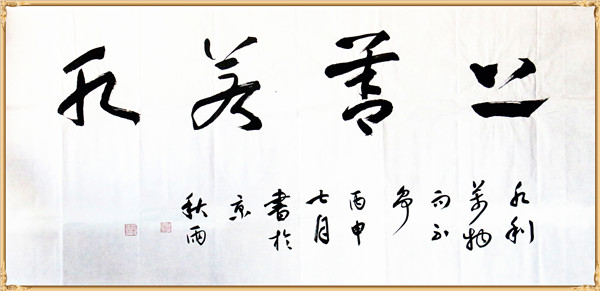 上善若水
水利
萬物
而不
争
丙申
七月
書於
京
秋雨